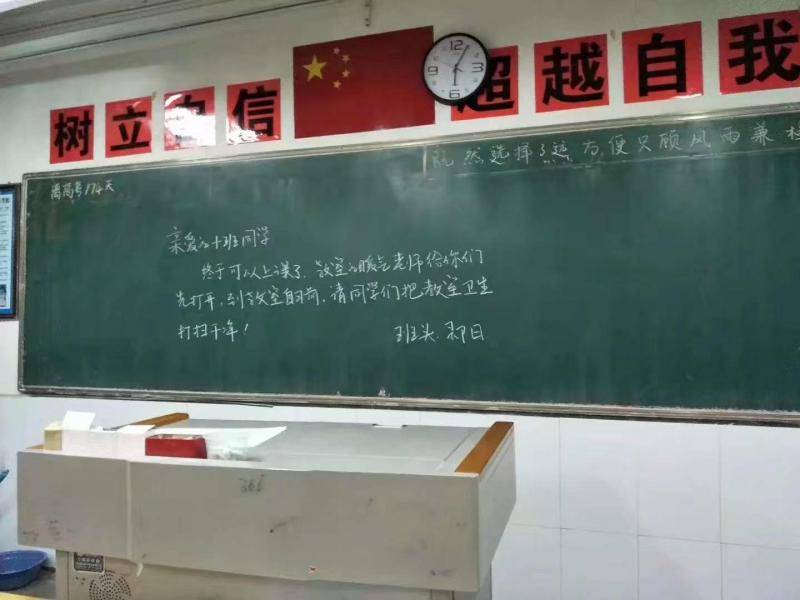 树立自信
超越自我
12
3
6
9
既然选择了远方,便只顾风雨兼程
离高考174天
亲爱的十班同学
终于可以上课了,教室的暖气老师给你们
先打开,到教室自习前,请同学们把教室卫生
打扫干净!
班头:即日
366